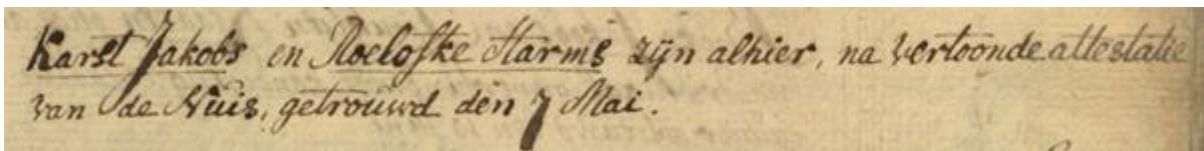 Karst Jakobs en Roelofke Harms zijn alhier, na vertoonde attestatie
van de Nuis, getrouwd den 7 Mai.